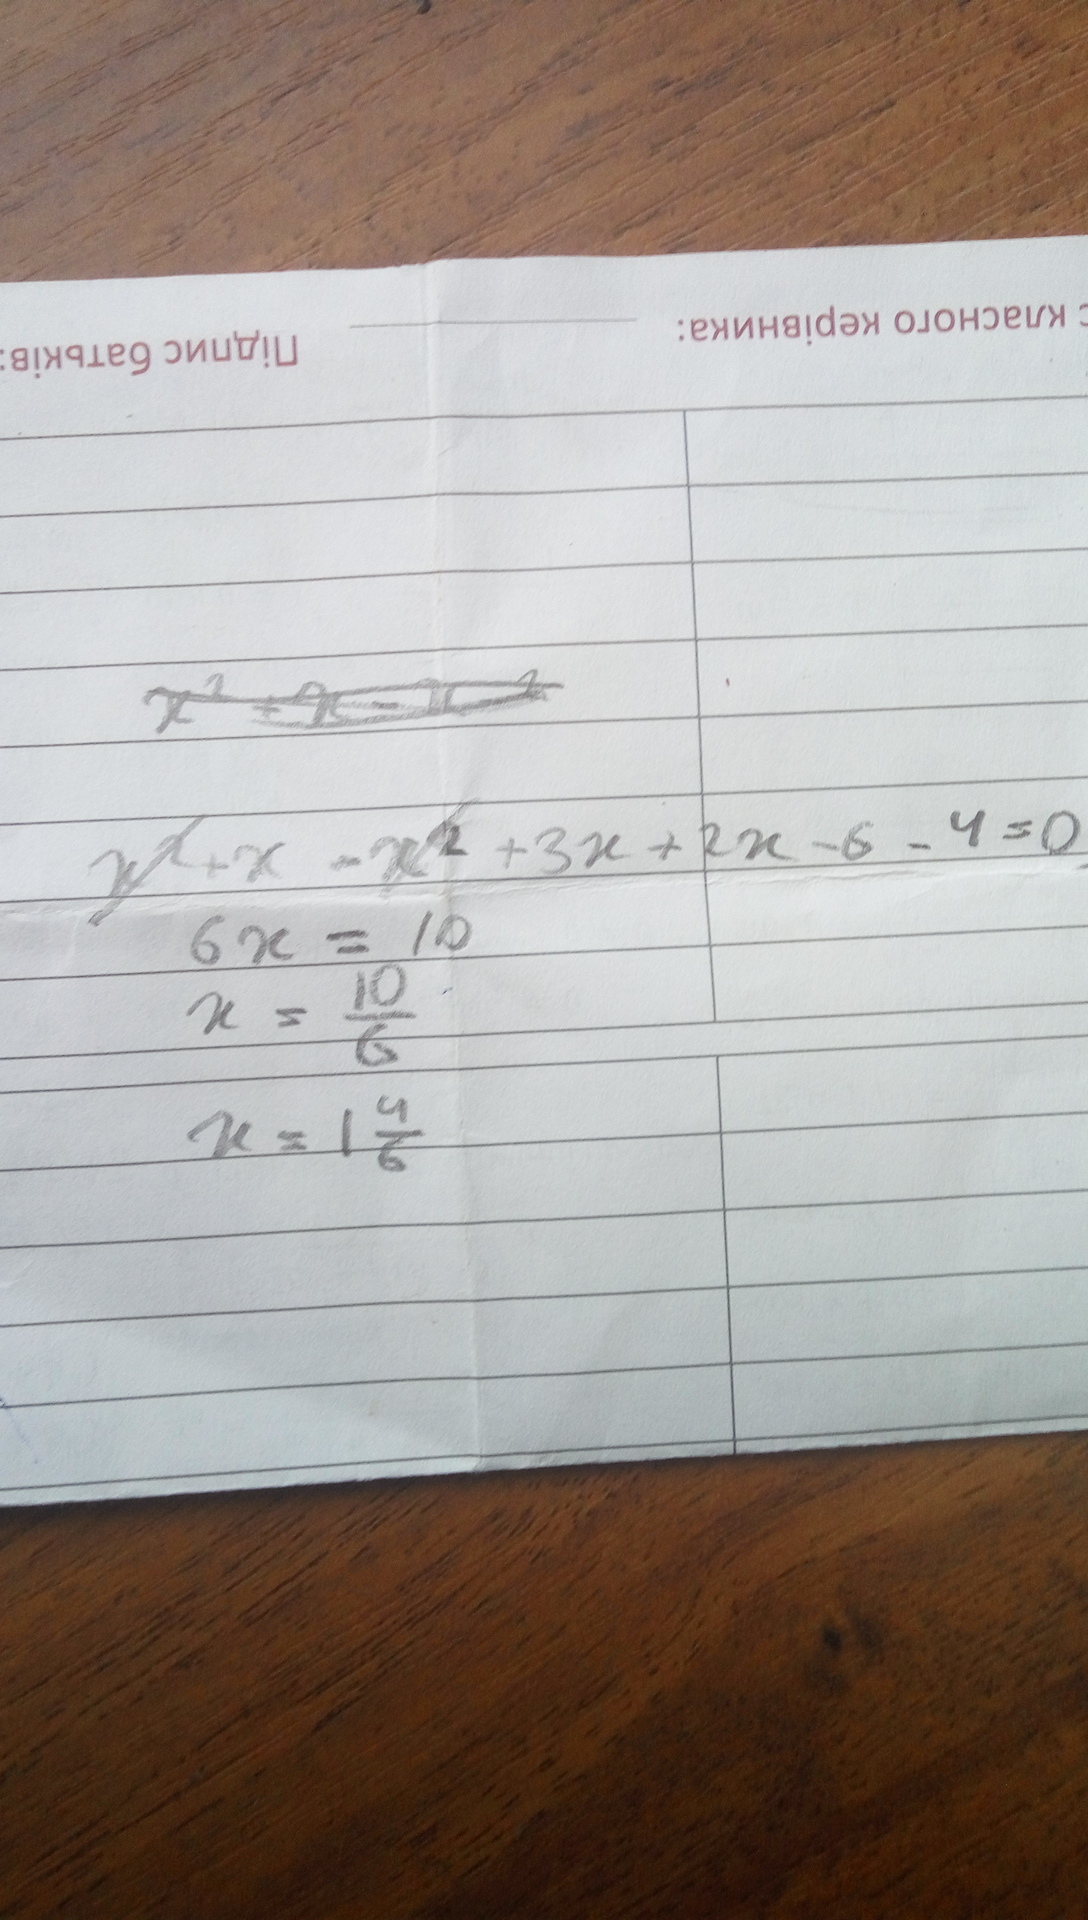 с класного керівника:
Підпис батьків:
x² + x - x²
x² + x - x² + 3x + 2x - 6 - 4 = 0
6x = 10
x = 10/6
x = 1 4/6